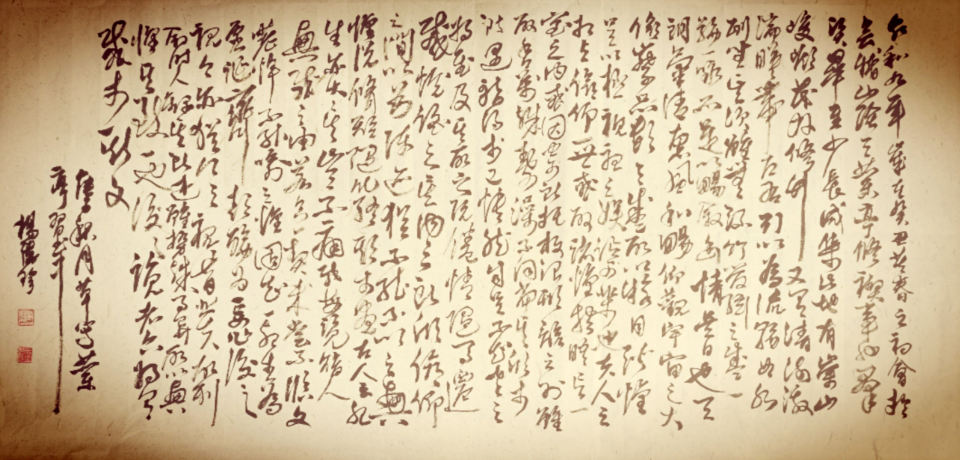 永和九年歲在癸丑暮春之初會於
會稽山陰之蘭亭脩禊事也羣
賢畢至少長咸集此地有崇山
峻嶺茂林脩竹又有清流激
湍暎帶左右引以為流觴曲水
列坐其次雖無絲竹管絃之盛一
觴一詠亦足以暢敘幽情是日也天
朗氣清惠風和暢仰觀宇宙之大
俯察品類之盛所以遊目騁懷
足以極視聽之娛信可樂也夫人之
相與俯仰一世或取諸懷抱晤言一
室之內或因寄所托放浪形骸之外雖
取舍萬殊靜躁不同當其欣於
所遇暫得於己快然自足不知老之
將至及其所之既倦情隨事遷
感慨係之矣向之所欣俛仰
之間以為陳迹猶不能不以之興
懷況脩短隨化終期於盡古人云死
生亦大矣豈不痛哉每覽昔人
興感之由若合一契未嘗不臨文
嗟悼不能喻之於懷固知一死生為
虛誕齊彭殤為妄作後之
視今亦猶今之視昔悲夫故列
敘時人錄其所述雖世殊事異所以興
懷其致一也後之覽者亦將有
感於斯文
秋月草書蘭
序
楊